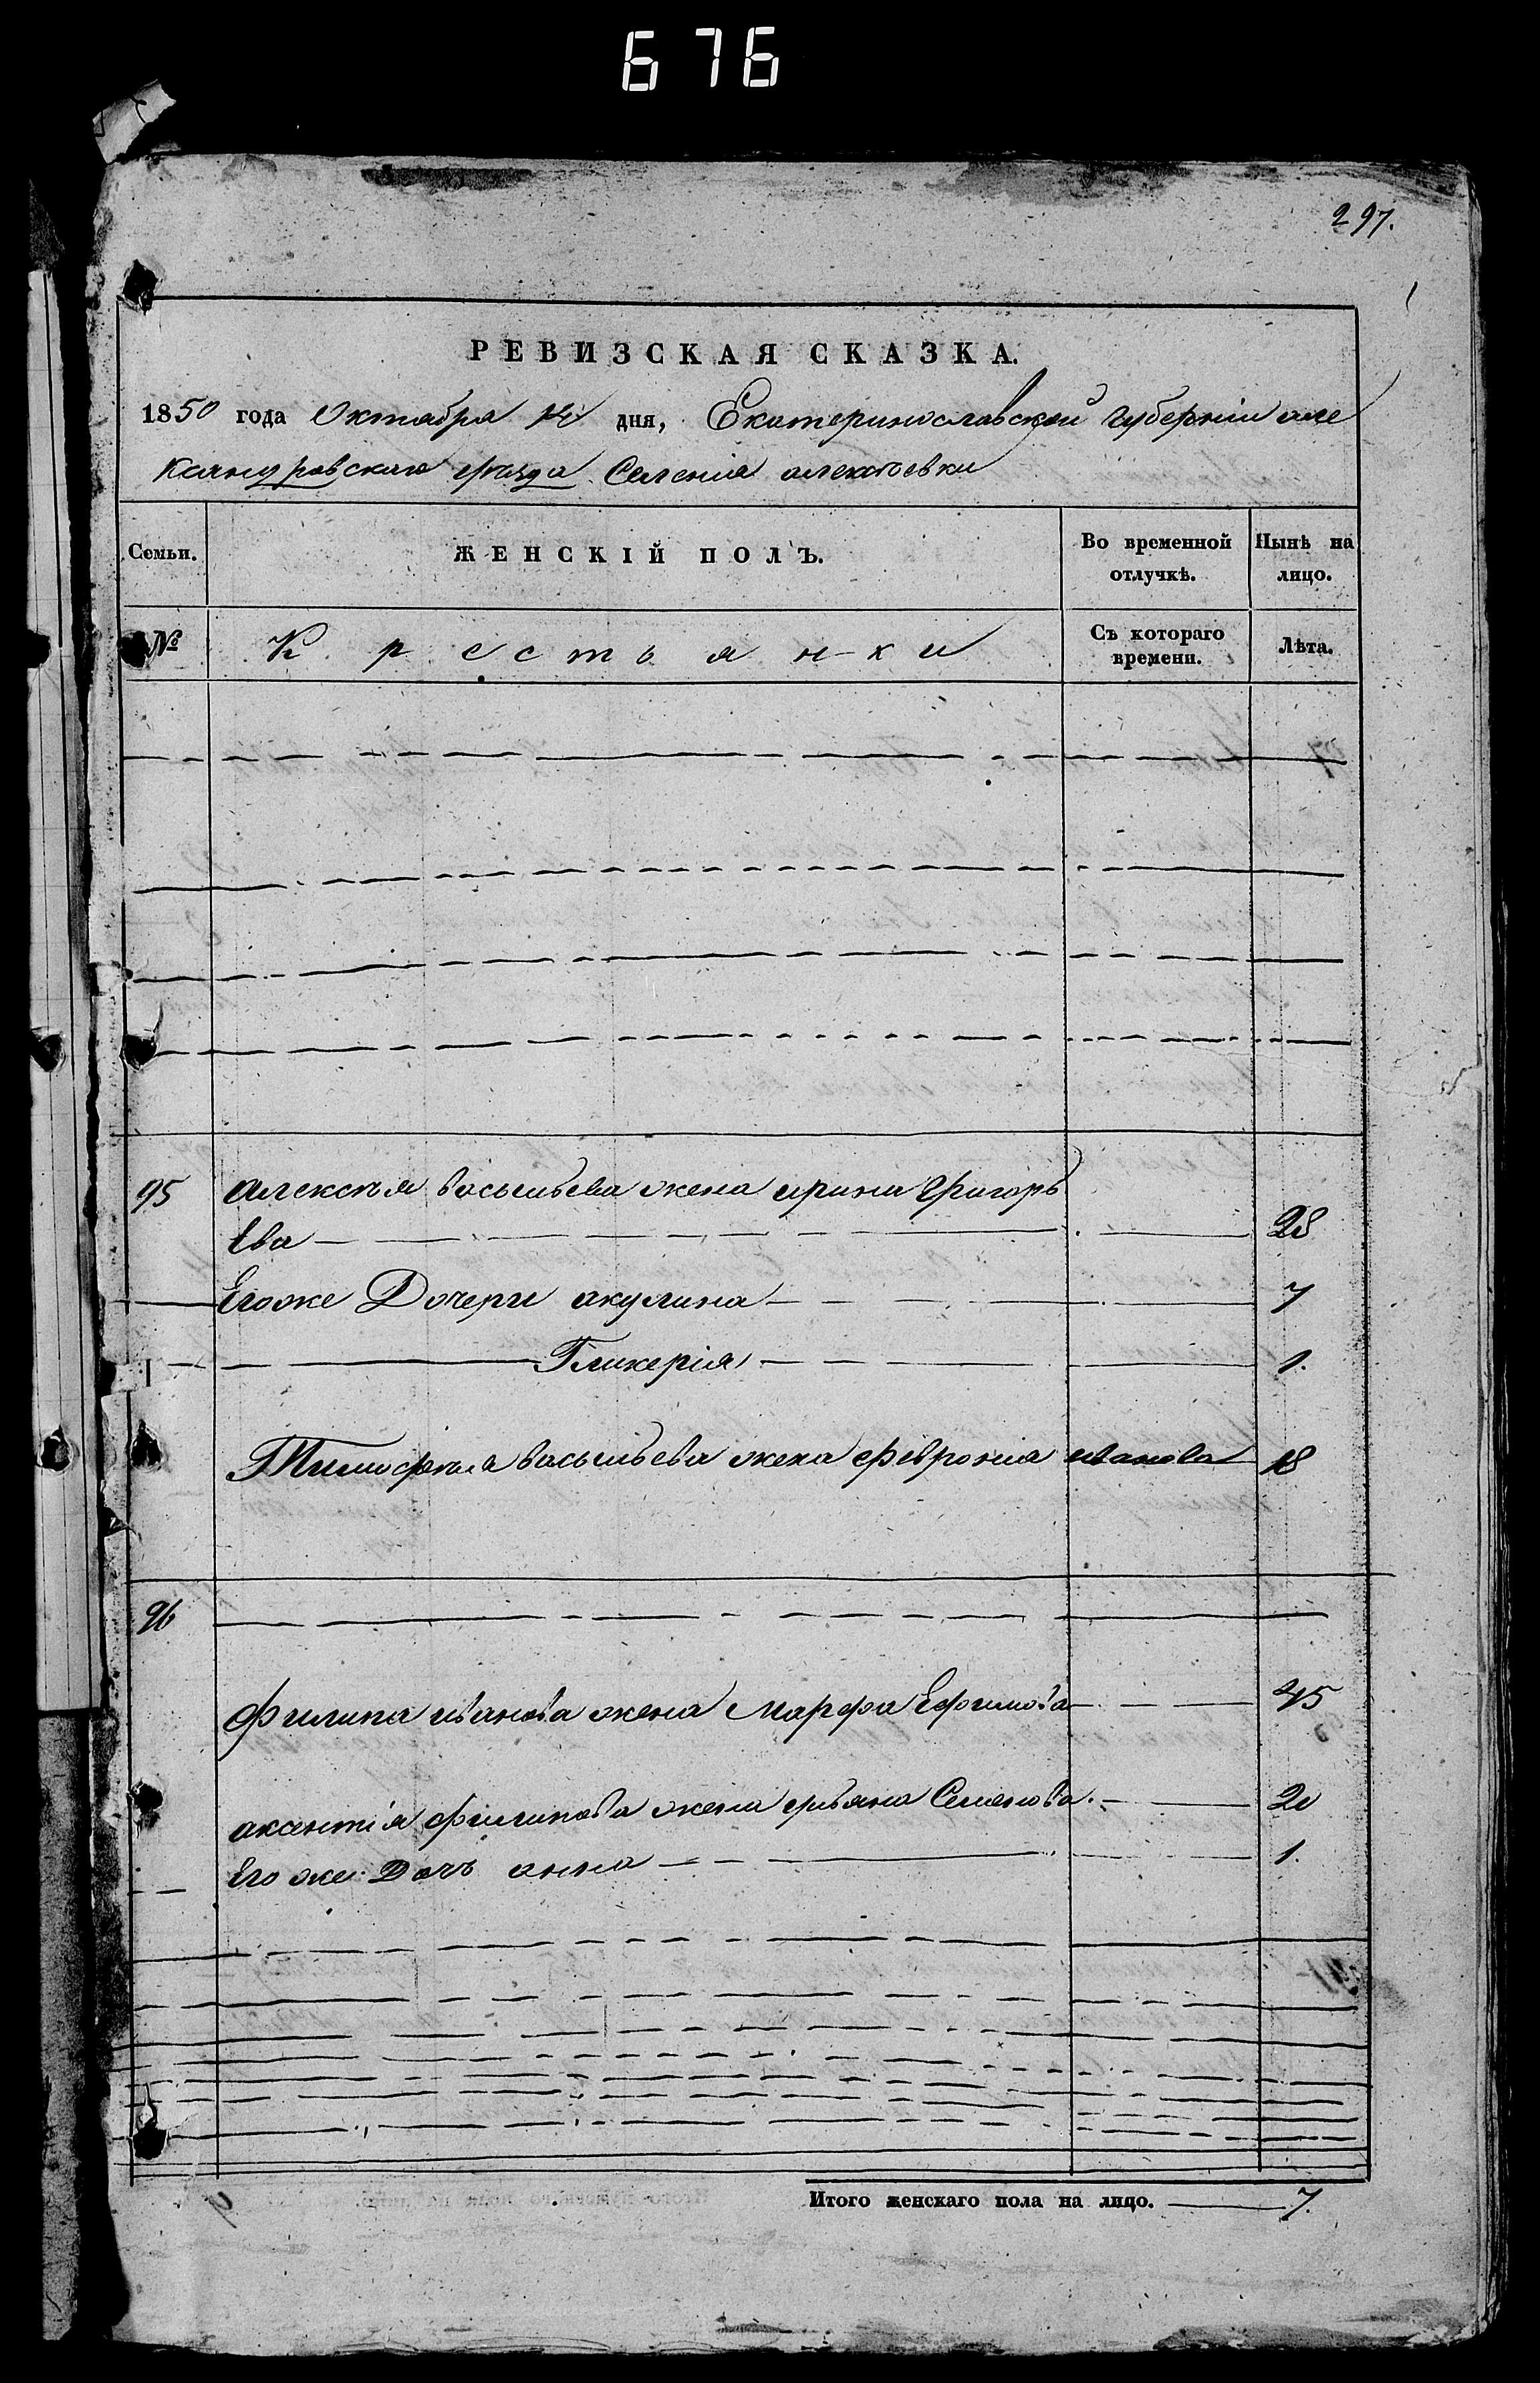 676
297.
РЕВИЗСКАЯ СКАЗКА.
1850 года Октября дня, Екатеринославской губерніи але
ксандровскаго уѣзда Селенія алексѣевки
Семьи. ЖЕНСКІЙ ПОЛЪ. Во временной отлучкѣ. Нынѣ на лицо.
№ Крестьянки Съ котораго времени. Лѣта.
95 алексѣя васильева жена ирина Григорь
ева 28
Егоже Дочери акулина 7
Гликерія 1.
Тимофѣя васильева жена февронія иванова 18
96
филипа иванова жена Марфа Ефимова 45
аксентія филипова жена ульяна Семенова. 20
Его же Дочь анна 1.
Итого женскаго пола на лицо. 7.